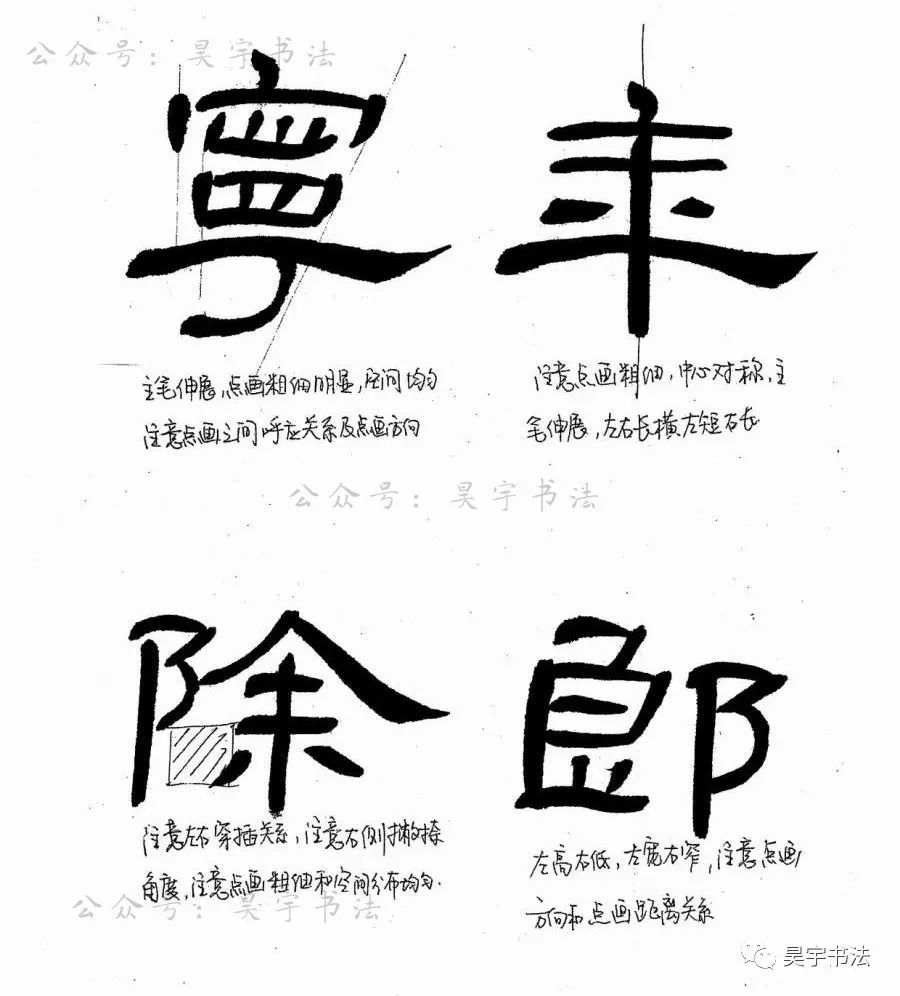 公众号：昊宇书法
寧
年
主笔伸展，点画粗细明显，空间均匀
注意点画之间呼应关系及点画方向
注意点画粗细，中心对称，主
笔伸展，左右长横左短右长
公众号：昊宇书法
除
郎
注意左右穿插关系，注意右侧撇捺
角度，注意点画粗细和空间分布均匀.
左高右低，左宽右窄，注意点画
方向和点画距离关系
公众号：昊宇书法
昊宇书法